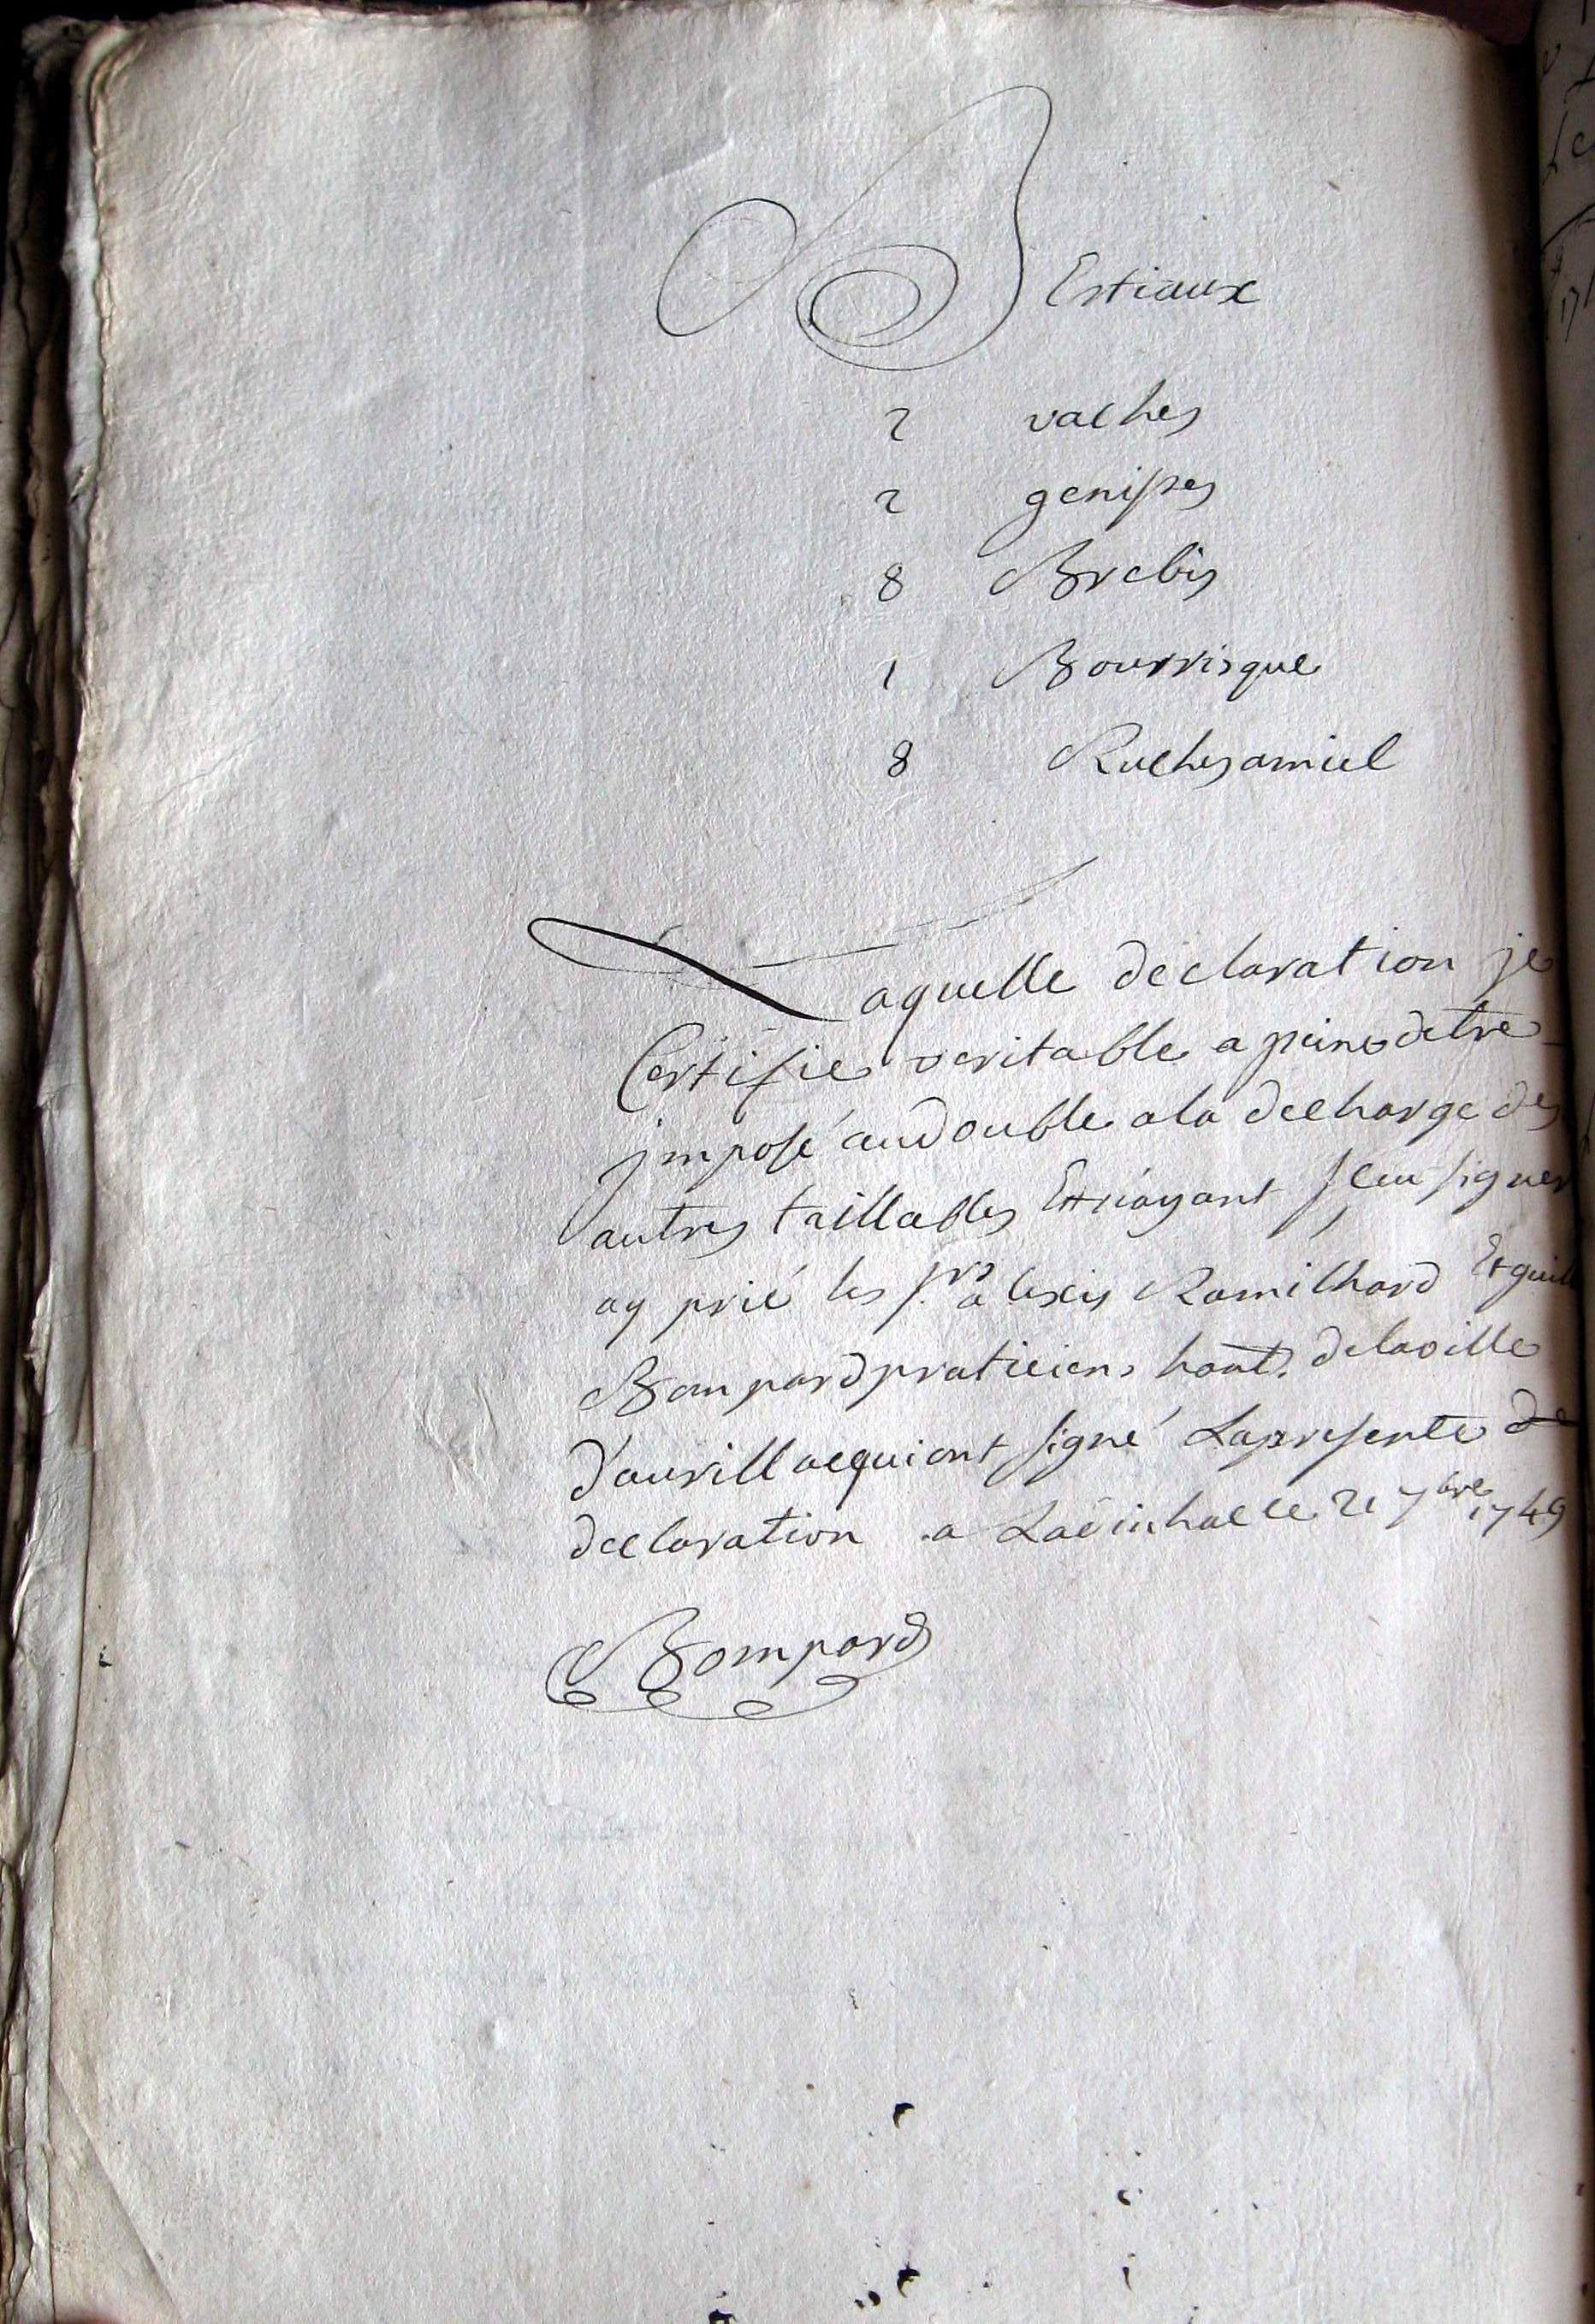 BEstiaux
2 vaches
2 genisses
8 Brebis
1 Bourrisque
8 Ruches amiel
Laquelle declaration je
Certifie veritable a peine detre
jmposé au double ala decharge des
autres taillables Et n'ayant sceu signer
ay prié les srs alexis Ramilhard Et guill
Bompard praticiens habt. delaville
d'aurillac qui ont signé La presente de
declaration a Lavinhac ce 2e 7bre 1749
Bompard